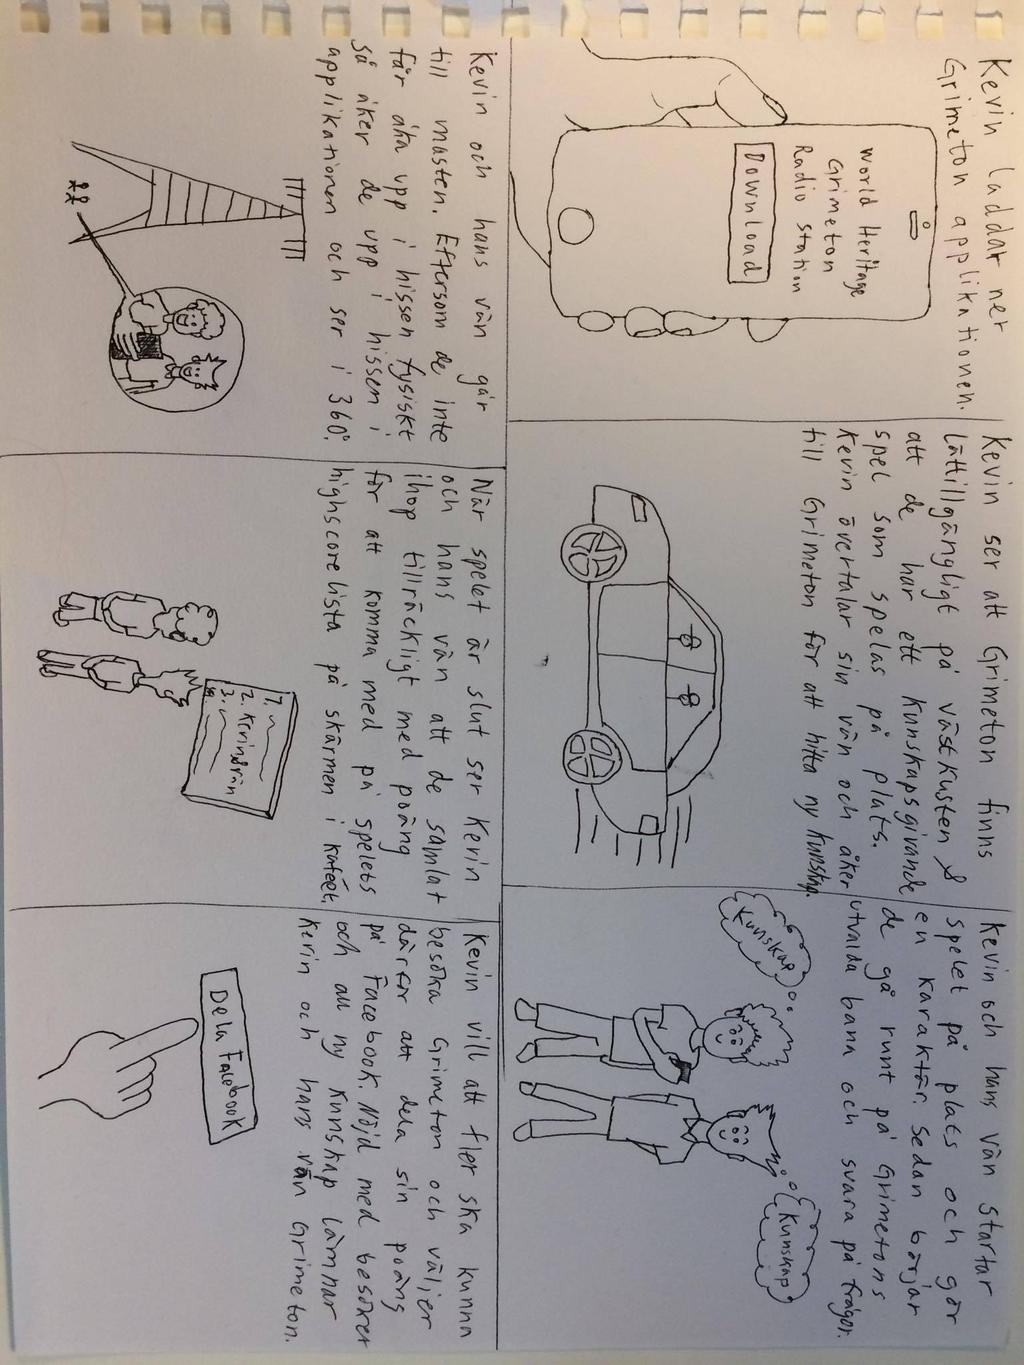 Kevin laddar ner
Grimeton applikationen.
World Heritage
Grimeton
Radio station
Download
Kevin ser att Grimeton finns
lättillgängligt på västkusten &
att de har ett kunskapsgivande
spel som spelas på plats.
Kevin övertalar sin vän och åker
till Grimeton för att hitta ny kunskap.
Kevin och hans vän startar
spelet på plats och gör
en karaktär. Sedan börjar
de gå runt på Grimetons
utvalda bana och svara på frågor.
Kunskap
Kunskap
Kevin och hans vän går
till masten. Eftersom de inte
får åka upp i hissen fysiskt
så åker de upp i hissen i
applikationen och ser i 360°.
När spelet är slut ser Kevin
och hans vän att de samlat
ihop tillräckligt med poäng
för att komma med på spelets
highscore lista på skärmen i kaféet.
1.
2. Kevin&vän
3.
4.
Kevin vill att fler ska kunna
besöka Grimeton och väljer
därför att dela sin poäng
på Facebook. Nöjd med besöket
och all ny kunskap lämnar
Kevin och hans vän Grimeton.
Dela Facebook